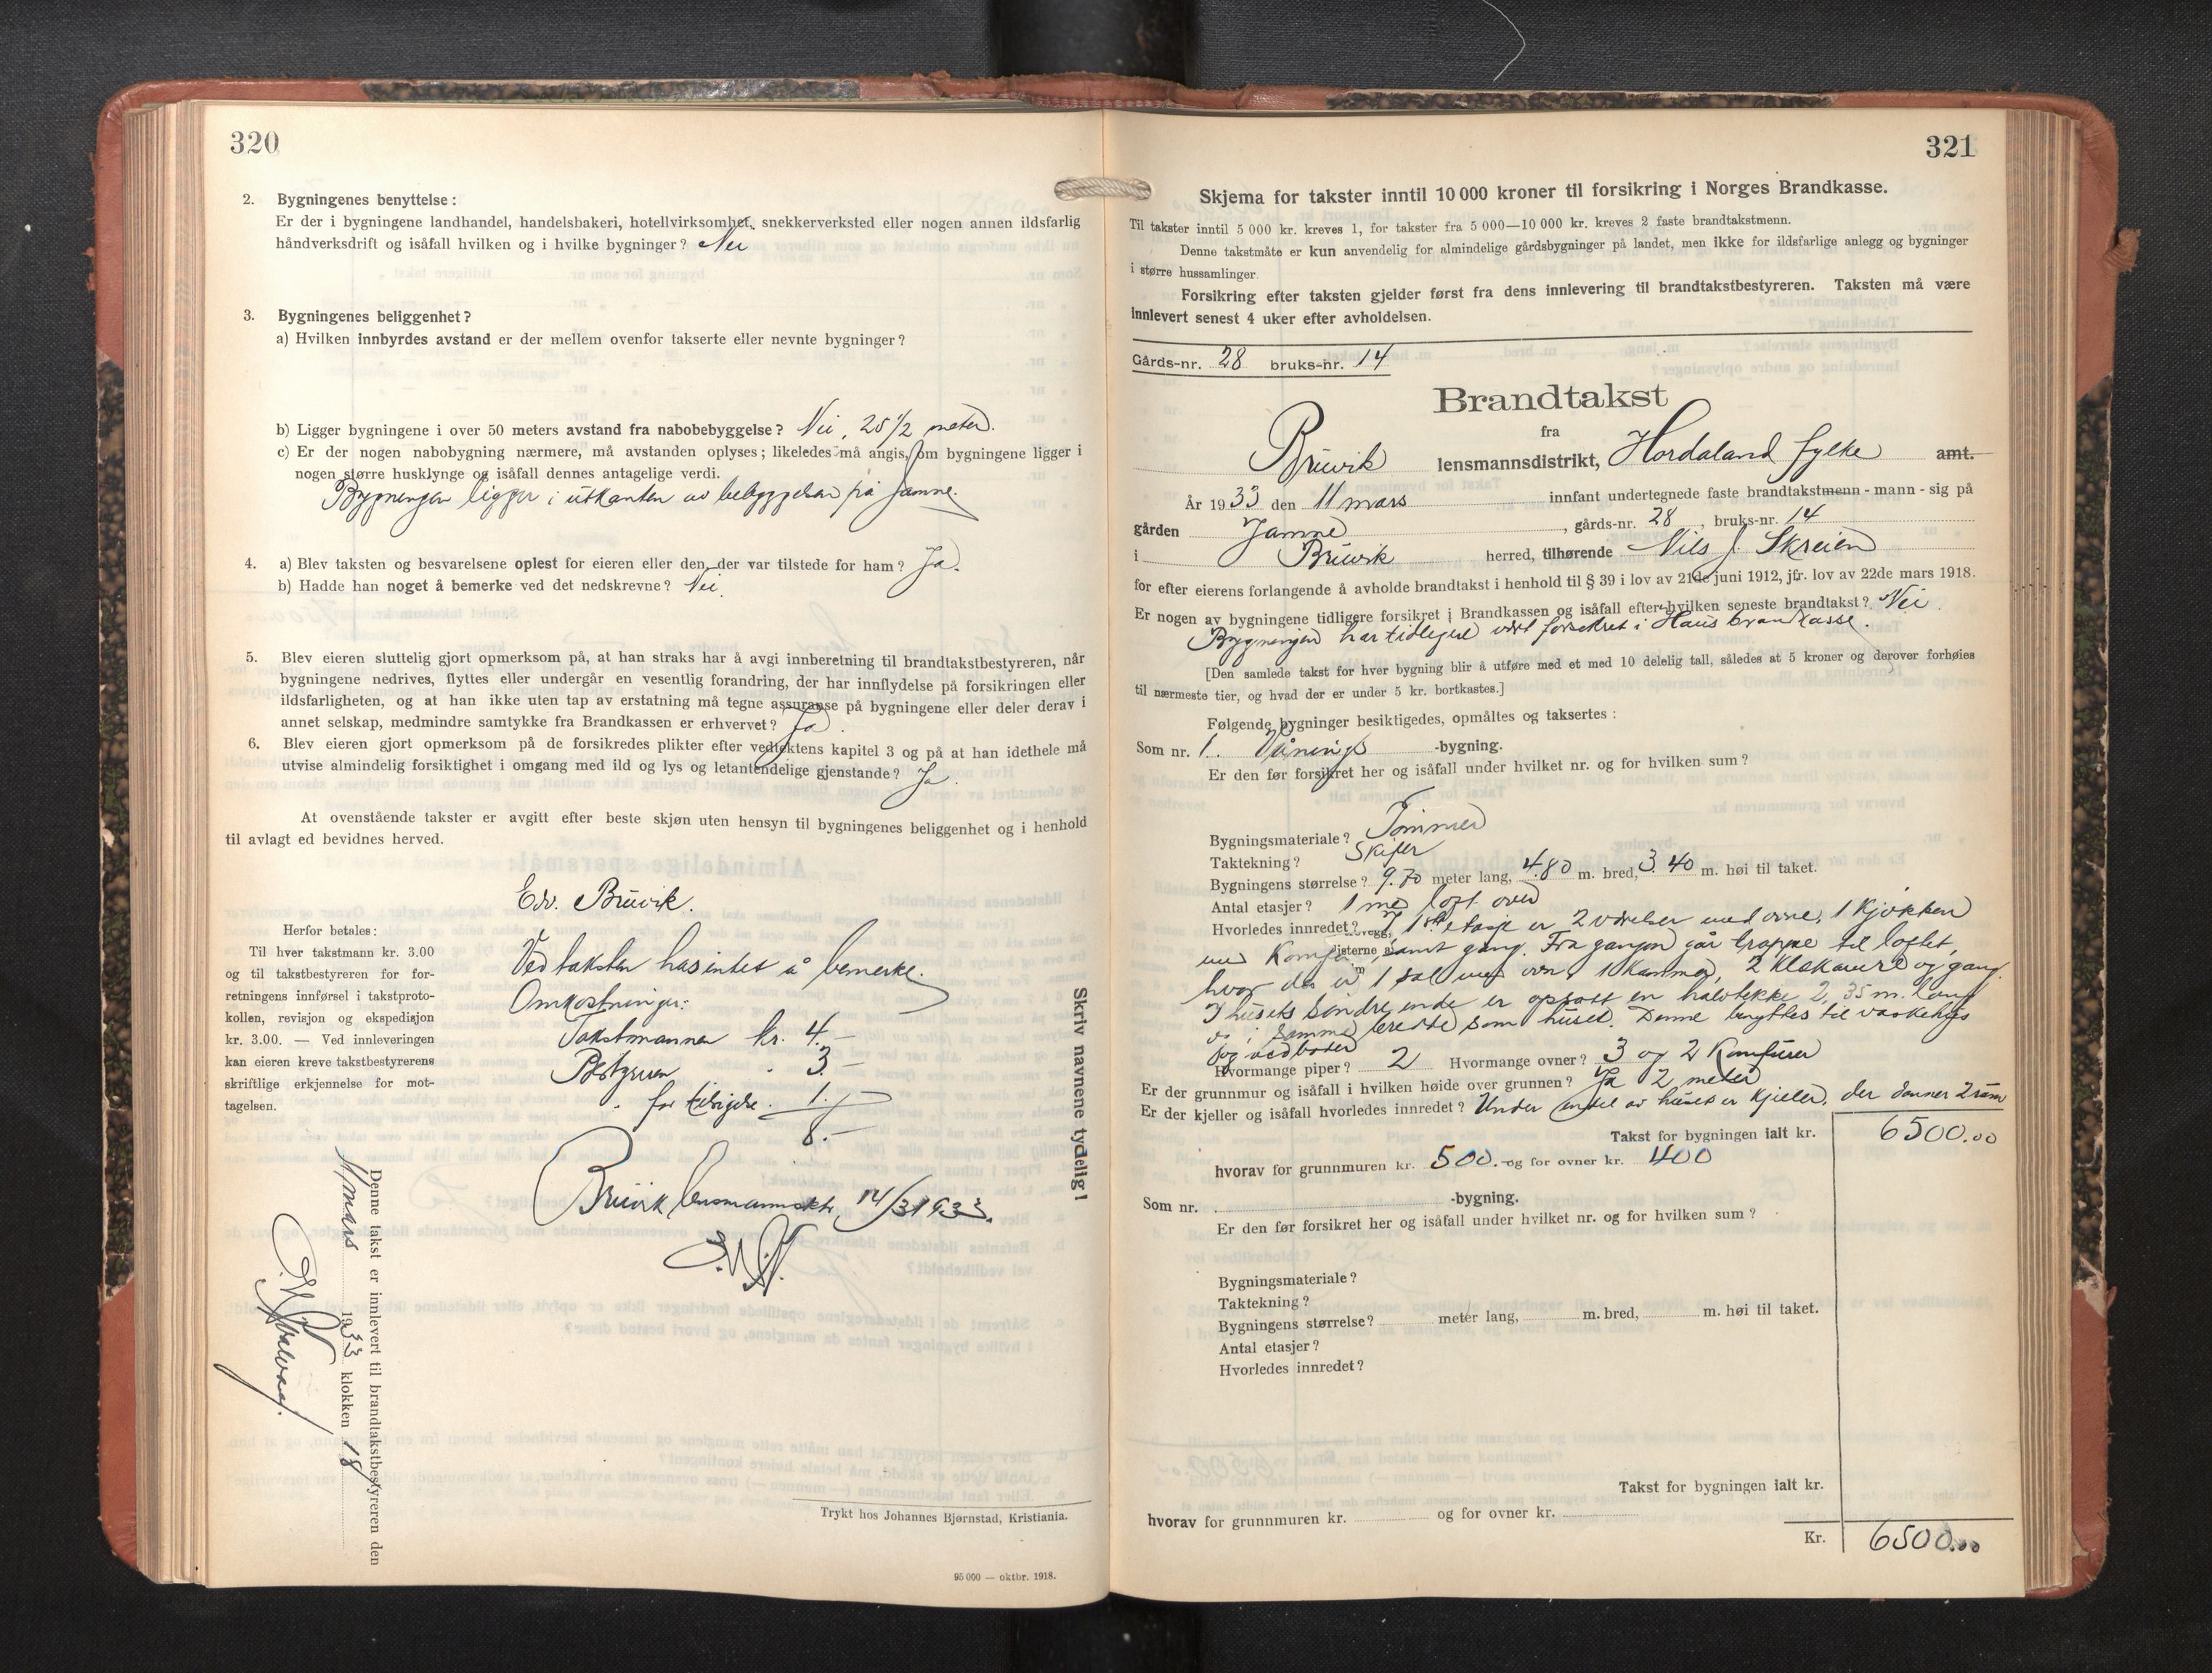 320
2. Bygningenes benyttelse:
Er der i bygningene landhandel, handelsbakeri, hotellvirksomhet, snekkerverksted eller nogen annen ildsfarlig
håndverksdrift og isåfall hvilken og i hvilke bygninger? Nei
3. Bygningenes beliggenhet?
a) Hvilken innbyrdes avstand er der mellem ovenfor takserte eller nevnte bygninger?
b) Ligger bygningene i over 50 meters avstand fra nabobebyggelse? Nei, 25 1/2 meter.
c) Er der nogen nabobygning nærmere, må avstanden oplyses; likeledes må angis, om bygningene ligger i
nogen større husklynge og isåfall dennes antagelige verdi.
Bygningen ligger i utkanten av bebyggelsen på Jamne.
4. a) Blev taksten og besvarelsene oplest for eieren eller den, der var tilstede for ham? Ja.
b) Hadde han noget å bemerke ved det nedskrevne? Nei.
5. Blev eieren sluttelig gjort opmerksom på, at han straks har å avgi innberetning til brandtakstbestyreren, når
bygningene nedrives, flyttes eller undergår en vesentlig forandring, der har innflydelse på forsikringen eller
ildsfarligheten, og at han ikke uten tap av erstatning må tegne assuranse på bygningene eller deler derav i
annet selskap, medmindre samtykke fra Brandkassen er erhvervet? Ja.
6. Blev eieren gjort opmerksom på de forsikredes plikter efter vedtektens kapitel 3 og på at han idethele må
utvise almindelig forsiktighet i omgang med ild og lys og letantendelige gjenstande? Ja.
At ovenstående takster er avgitt efter beste skjøn uten hensyn til bygningenes beliggenhet og i henhold
til avlagt ed bevidnes herved.
Edv. Bruvik.
Herfor betales:
Til hver takstmann kr. 3.00
og til takstbestyreren for for-
retningens innførsel i takstproto-
kollen, revisjon og ekspedisjon
kr. 3.00. — Ved innleveringen
kan eieren kreve takstbestyrerens
skriftlige erkjennelse for mot-
tagelsen.
Ved taksten has intet å bemerke.
Omkostninger:
Takstmannen kr. 4.—
Bestyreren " 3.—
" for tilsigelse 1.—
8.—
Bruvik lensmannsktr. 14/3 1933.
Skriv navnene tydelig!
Denne takst er innlevert til brandtakstbestyreren den
11 mars 1933 klokken 18
Trykt hos Johannes Bjørnstad, Kristiania.
95 000 — oktbr. 1918.
321
Skjema for takster inntil 10 000 kroner til forsikring i Norges Brandkasse.
Til takster inntil 5 000 kr. kreves 1, for takster fra 5 000—10 000 kr. kreves 2 faste brandtakstmenn.
Denne takstmåte er kun anvendelig for almindelige gårdsbygninger på landet, men ikke for ildsfarlige anlegg og bygninger
i større hussamlinger.
Forsikring efter taksten gjelder først fra dens innlevering til brandtakstbestyreren. Taksten må være
innlevert senest 4 uker efter avholdelsen.
Gårds-nr. 28 bruks-nr. 14
Brandtakst
fra
Bruvik lensmannsdistrikt, Hordaland fylke amt.
År 1933 den 11 mars innfant undertegnede faste brandtakstmenn - mann - sig på
gården Jamne, gårds-nr. 28, bruks-nr. 14
i Bruvik herred, tilhørende Nils J. Skreien
for efter eierens forlangende å avholde brandtakst i henhold til § 39 i lov av 21de juni 1912, jfr. lov av 22de mars 1918.
Er nogen av bygningene tidligere forsikret i Brandkassen og isåfall efter hvilken seneste brandtakst? Nei.
Bygningen har tidligere vært forsikret i Haus brandkasse.
[Den samlede takst for hver bygning blir å utføre med et med 10 delelig tall, således at 5 kroner og derover forhøies
til nærmeste tier, og hvad der er under 5 kr. bortkastes.]
Følgende bygninger besiktigedes, opmåltes og taksertes:
Som nr. 1. Vånings -bygning.
Er den før forsikret her og isåfall under hvilket nr. og for hvilken sum?
Bygningsmateriale? Tømmer
Taktekning? Skifer
Bygningens størrelse? 9.70 meter lang, 4.80 m. bred, 3.40 m. høi til taket.
Antal etasjer? 1 med loft over
Hvorledes innredet? I 1ste etasje er 2 værelser med ovne, 1 kjøkken
med komfyr samt gang. Fra gangen går trappe til loftet,
hvor der er 1 sal med ovn, 1 kammer, 2 kleskamre og gang.
I husets søndre ende er opsatt en halvtekke 2,35 m. lang
og i samme bredde som huset. Denne benyttes til vaskehus
og vedboder
Hvormange piper? 2 Hvormange ovner? 3 og 2 Komfurer
Er der grunnmur og isåfall i hvilken høide over grunnen? Ja 2 meter
Er der kjeller og isåfall hvorledes innredet? Under en del av huset er kjeller, der danner 2 rum
Takst for bygningen ialt kr. 6500.00
hvorav for grunnmuren kr. 500.- og for ovner kr. 400
Som nr. -bygning.
Er den før forsikret her og isåfall under hvilket nr. og for hvilken sum?
Bygningsmateriale?
Taktekning?
Bygningens størrelse? meter lang, m. bred, m. høi til taket.
Antal etasjer?
Hvorledes innredet?
Takst for bygningen ialt kr.
hvorav for grunnmuren kr. og for ovner kr.
Kr. 6500.00